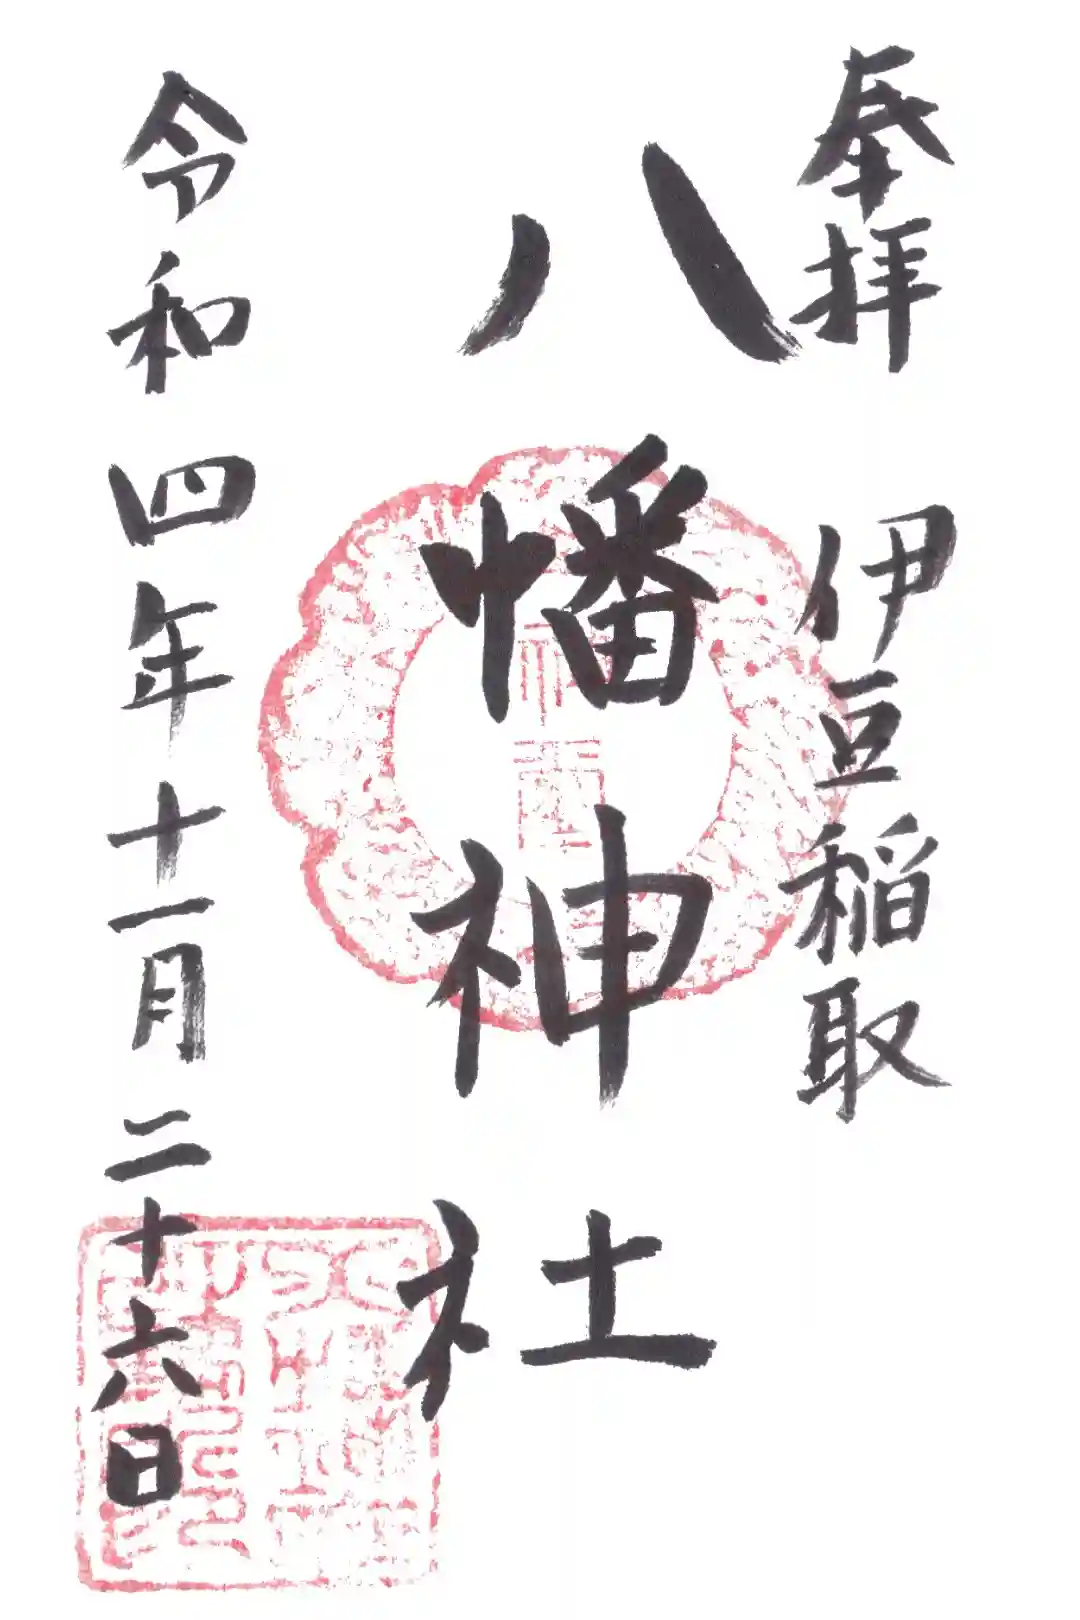 奉拝
伊豆稲取
八幡神社
令和四年十一月二十六日